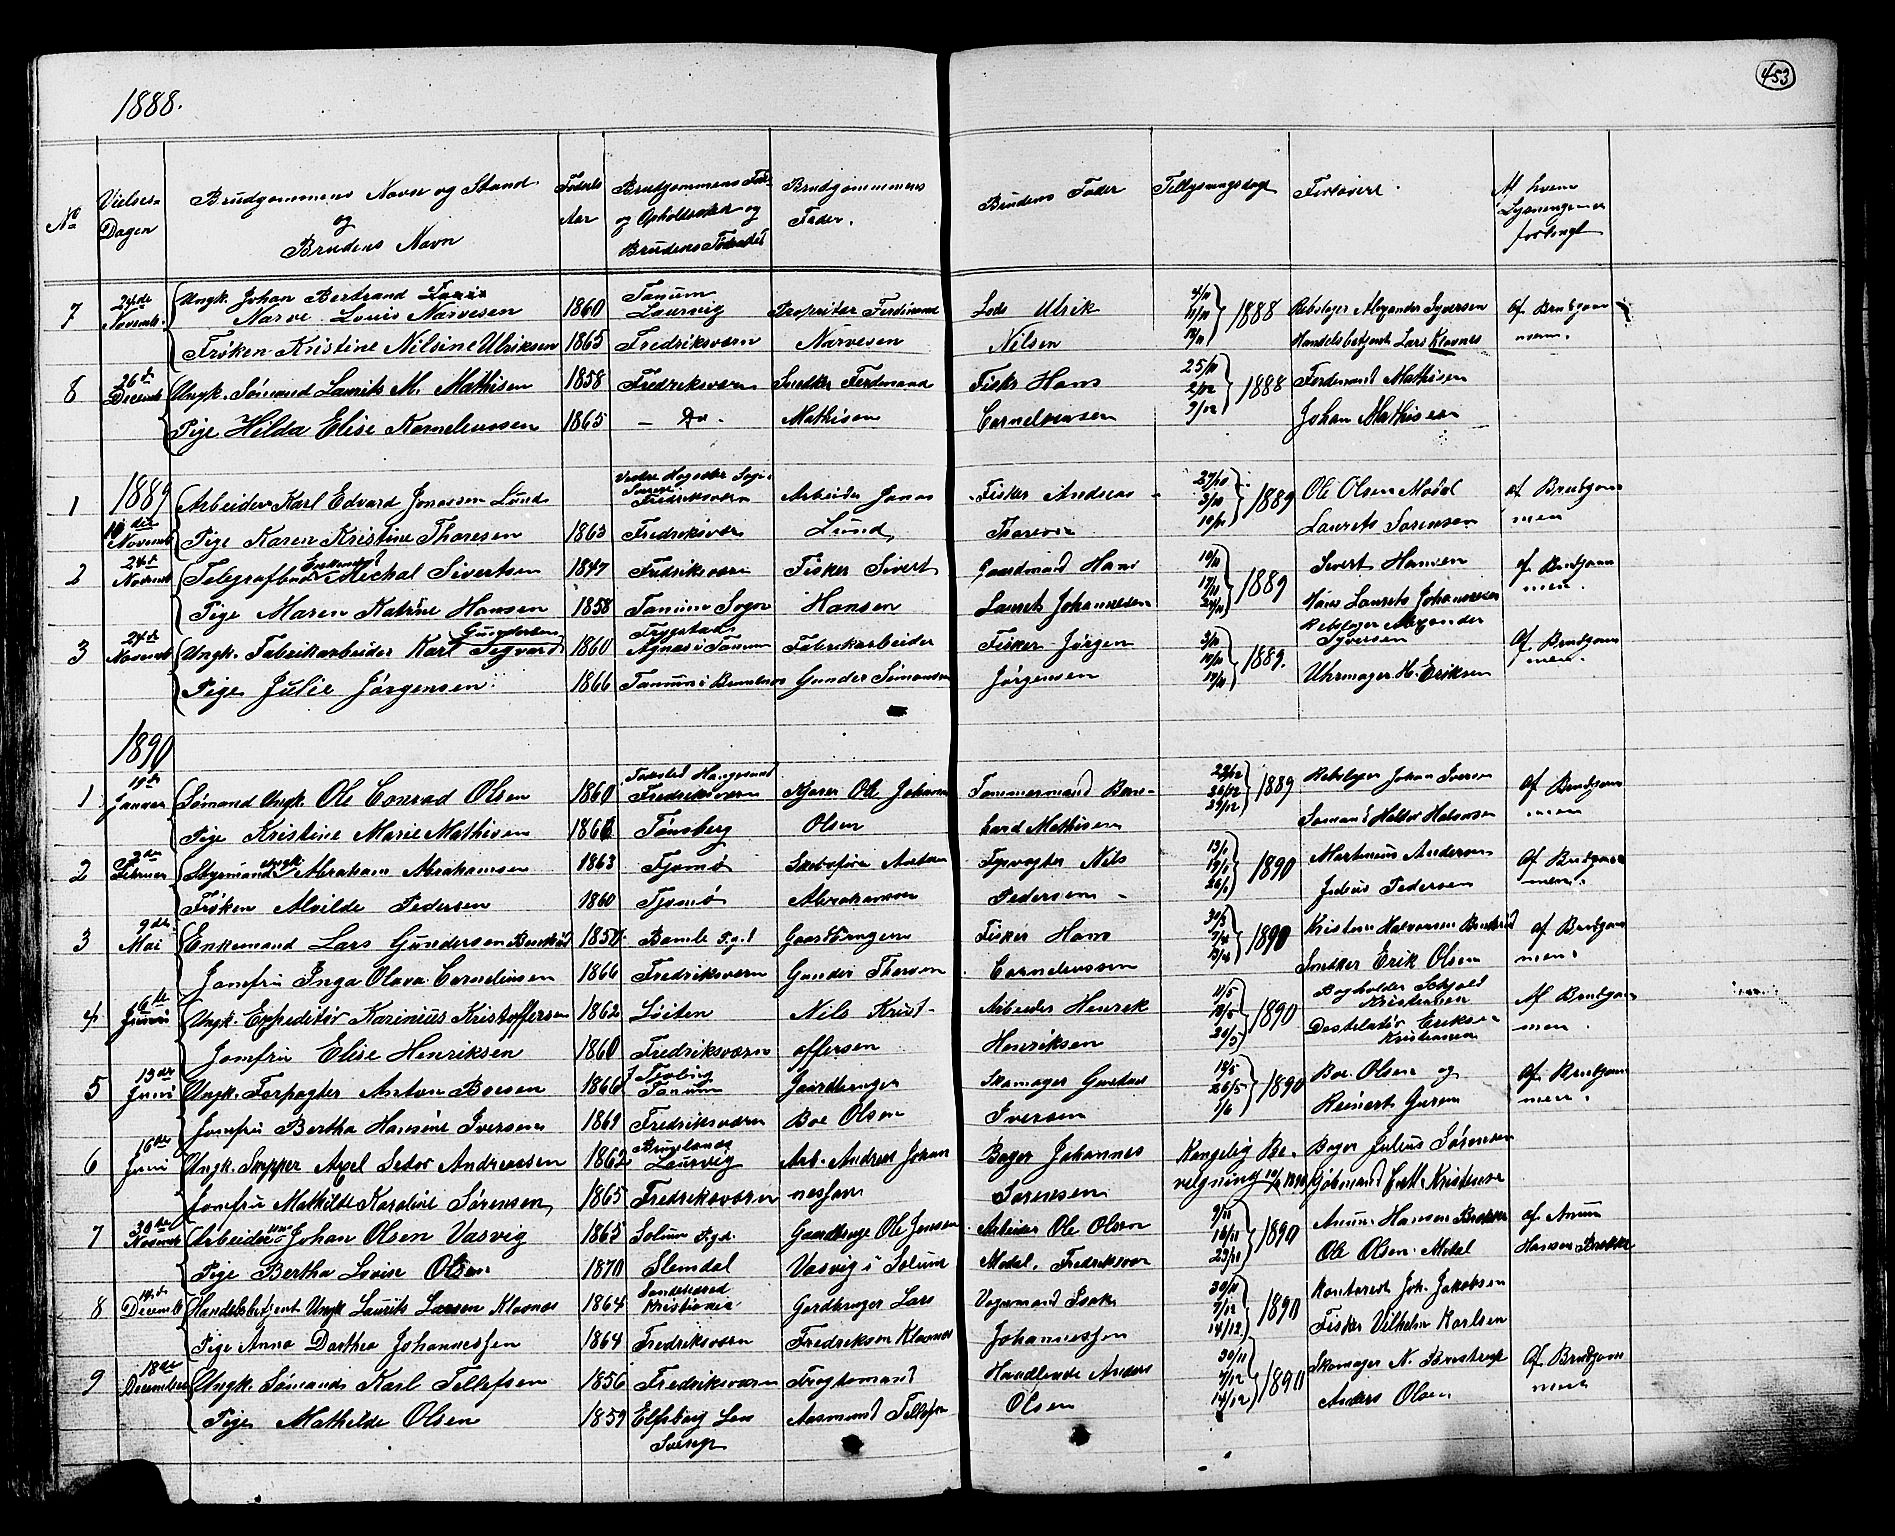 453
1888.
No
Vielses-
Dagen
Brudgommens Navn og Stand
og
Brudens Navn
Fødsels
Aar
Brudgommens Føde-
og Opholdssted og
Brudens Fødested
Brudgommens
Fader.
Brudens Fader
Tillysningsdage
Forlovere.
Af hvem
Lysningen er
forlangt
7 24de Novemb. Ungk. Johan Bertrand Louis 1860 Tanum Proprietær Ferdinand Lods Ulrik 4/11 11/11 1888 Rebslager Alexander Syversen Af Brudgom
Narve Louis Narvesen Laurvig
Frøken Kristine Nilsine Ulriksen 1865 Fredriksværn Narvesen Nilsen Handelsbetjent Lars Klavnes
8 26de Decemb Ungk. Sømand Laurits M. Mathisen 1858 Fredriksværn Snedker Ferdinand Fisker Hans 25/11 2/12 9/12 1888 Ferdinand Mathisen
Pige Hilda Elise Korneliussen 1865 - Do - Mathisen Corneliussen Johan Mathisen
1889
1 10de Novemb Arbeider Karl Edvard Jonassen Lund Fredriksværn Arbeider Jonas Fisker Andreas 27/10 3/11 10/11 1889 Ole Olsen Modal af Brudgom
Pige Karen Kristine Thoresen 1863 Fredriksværn Lund Thoresen Laurits Sørensen men
2 24de Novemb Telegrafbud Enkemand Michal Sivertsen 1847 Fredriksværn Fisker Sivert Gaardmand Hans 10/11 17/11 24/11 1889 Sivert Hansen af Brudgom
Pige Maren Katrine Hansen 1858 Tanums Sogn Hansen Laurits Johannesen Hans Laurits Johannesen men.
3 24de Novemb Ungk. Fabrikarbeider Karl Sigvard Gundersen 1860 Agnes i Tanum Fabrikarbeider Fisker Jørgen 3/11 10/11 17/11 1889. Rebslager Alexander Syversen Af Brudgom
Pige Julie Jørgensen 1866 Tanum i Brunlanes Gunder Simonsen Jørgensen Uhrmager H. Eriksen men.
1890
1 Januar Sømand Ungk. Ole Conrad Olsen 1860 Fødested Haugesund Fredriksværn Ole Johan Tømmermand Bern- 22/12 26/12 29/12 1889 Rebslager Johan Iversen Af Brudgom
Pige Kristine Marie Mathisen 1866 Tønsberg Olsen hard Mathisen Sømand men
2 2den Februar Styrmand Ungk. Abraham Abrahamsen 1863 Tjømø Anton Fyrvogter Nils 19/1 26/1 1890 Martinius Andersen Af Brudgom
Frøken Alvilde Pedersen 1860 Tjømø Abrahamsen Pedersen - Julius Pedersen men.
3 9de Mai Enkemand Lars Gundersen 1850 Bamble Pgd Fisker Hans 1890 Kristen Halvorsen af Brudgom
Jomfru Inga Olava Corneliusen 1866 Fredriksværn Gunder Thorsen Corneliussen Snedker Erik Olsen men.
4 6te Juni Ungk. Expeditør Karinius Kristoffersen 1862 Løiten Nils Krist- Arbeider Henrik 11/5 18/5 26/5 1890 Bogholder Kristiansen Af Brudgom
Jomfru Elise Henriksen 1860 Fredriksværn offersen Henriksen Destilatør Eriksen Kristiansen men.
5 13de Juni Ungk. Forpagter Anton Boesen 1866 Tanum Gaardbruger Skomager Gustav 18/5 26/5 1/6 1890 Boe Olsen og Af Brudgom
Jomfru Bertha Hansine Iversen 1869 Fredriksværn Boe Olsen Iversen Reinert men.
6 16de Juni Ungk. Skipper Axel Sedor Andreassen 1862 Brunlanes Laurvig Arb. Andreas Johan Bager Johannes Kongelig Be- Bager Julius Sørensen
Jomfru Mathilde Karoline Sørensen 1865 Fredriksværn nessen Sørensen vilgning 1890 Kjøbmand Kristensen
7 30te Novemb Arbeider Johan Olsen Vasvig 1865 Solum Pgd. Gaardbruger Ole Jensen Arbeider Ole Olsen 9/11 16/11 23/11 1890 Anun Hansen Brekke af Anun
Pige Bertha Lovise Olsen 1870 Slemdal Vasvig i Solum Modal. Fredriksværn Ole Olsen Modal Hansen Brekke
8 14de Decemb Handelsbetjent Ungk Laurits Larsen Klavnes 1864 Sandefjord Kristiania Gardbruger Lars Vognmand Isak 30/11 7/12 14/12 1890 Kontorist Joh. Jakobsen
Pige Anna Dorthea Johannessen 1864 Fredriksværn Fredriksen Klavnes Johannessen Fisker Vilhelm Karlsen
9 18de December Ungk. Sømand Karl Tellefsen 1856 Fredriksværn Handlende Anders 30/11 7/12 14/12 1890 Skomager N. Af Brudgom
Pige Mathilde Olsen 1859 Elfsborg Len Aasmund Tellefsen Olsen Anders Olsen men
Sverige